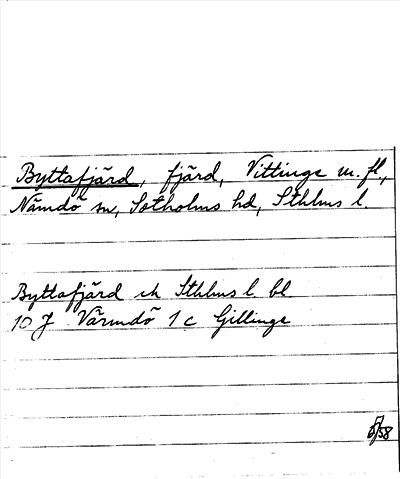 Byttafjärd, fjärd, Vittinge m. fl.,
Nämdö sn, Sotholms hd, Sthlms l.
Byttafjärd ek Sthlms l. bl
10 J Värmdö 1 c Gillinge
5/58